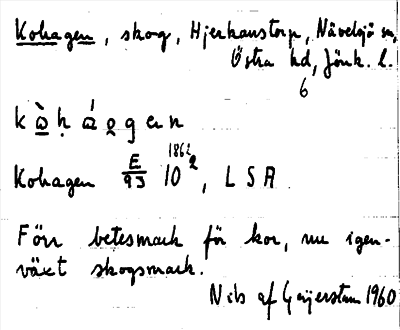 Kohagen, skog, Hjerkanstorp, Nävelsjö sn,
Östra hd, Jönk. l.
6
Kohagen E/93 10 1862 2, LSA
Förr betesmark för kor, nu igen-
växt skogsmark.
Nils af Geijerstam 1960